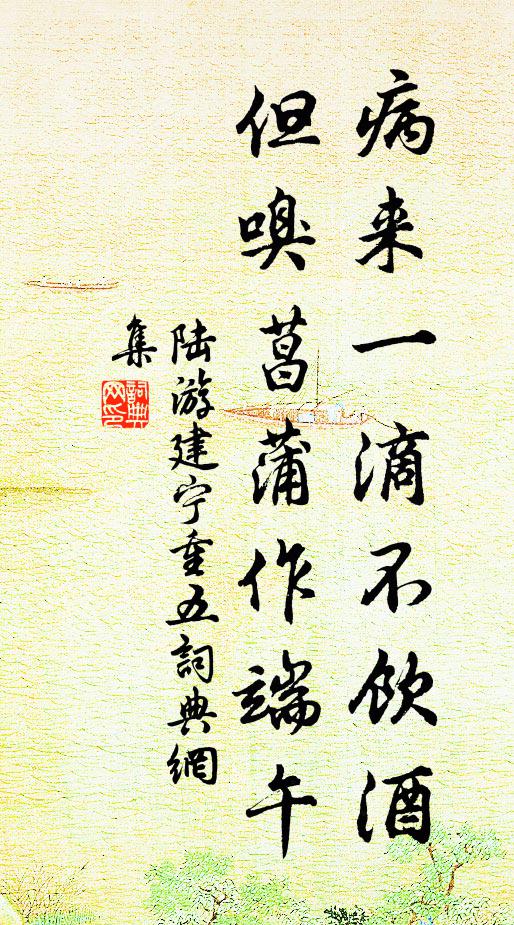 病来一滴不饮酒
但嗅菖蒲作端午
陆游建宁重五詞典網
集
詞典
网印